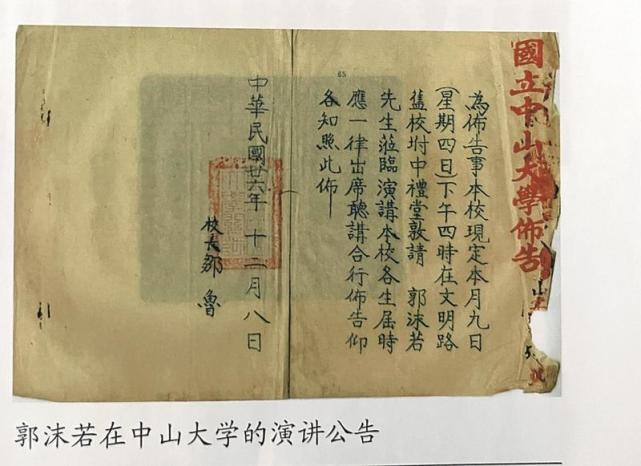 國立中山大學佈告
為佈告事本校現定本月九日
(星期四日)下午四時在文明路
舊校坿中禮堂敦請　郭沫若
先生蒞臨演講本校各生屆時
應一律出席聽講合行佈告仰
各知照此佈
65
中華民國廿六年十二月八日
校長鄒魯
郭沫若在中山大学的演讲公告